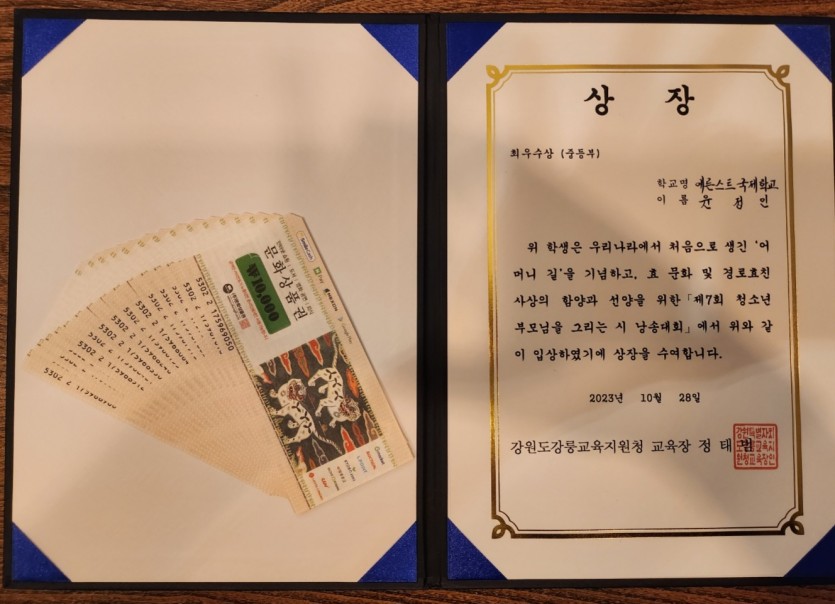 문화상품권
₩10,000
5302 2 175969050
상 장
최우수상 (중등부)
학교명 예른스트국제학교
이 름 윤 정 인
위 학생은 우리나라에서 처음으로 생긴 '어
머니 길'을 기념하고, 효 문화 및 경로효친
사상의 함양과 선양을 위한 「제7회 청소년
부모님을 그리는 시 낭송대회」에서 위와 같
이 입상하였기에 상장을 수여합니다.
2023년 10월 28일
강원도강릉교육지원청 교육장 정 태 범